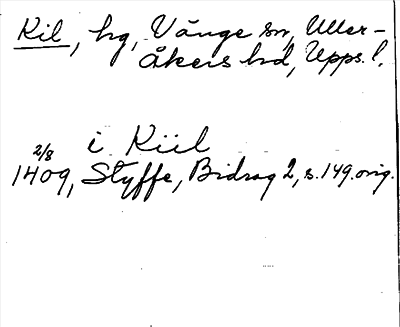 Kil, hg, Vänge sn, Uller-
åkers hd, Upps. l.
i Kiil
2/8
1409, Styffe, Bidrag 2, s. 149. orig.